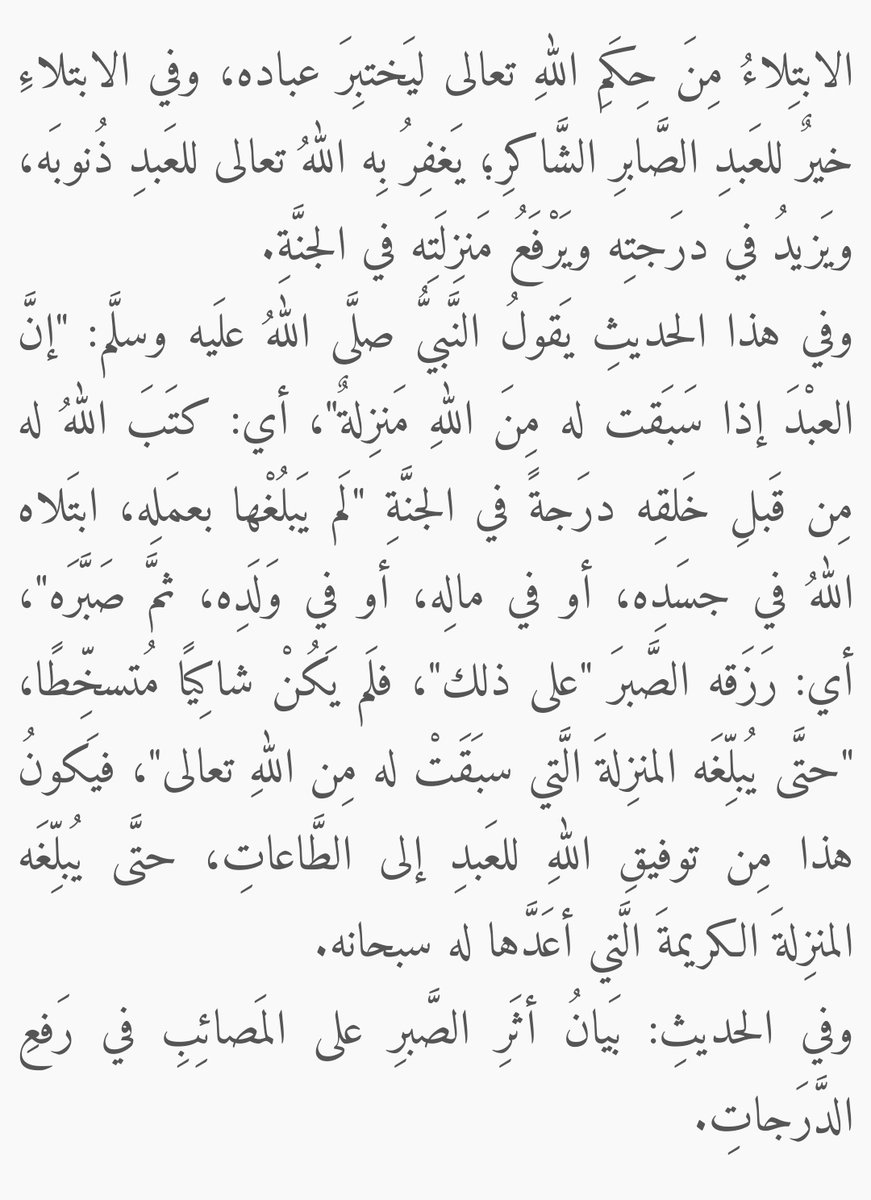 الابتِلاءُ مِنَ حِكَمِ اللهِ تعالى ليَختبِرَ عباده، وفي الابتلاءِ
خيرٌ للعَبدِ الصَّابرِ الشَّاكرِ؛ يَغفِرُ بِه اللهُ تعالى للعَبدِ ذُنوبَه،
ويَزيدُ في درَجتِه ويَرْفَعُ مَنزِلَتِه في الجنَّةِ.
وفي هذا الحديثِ يَقولُ النَّبيُّ صلَّى اللهُ علَيه وسلَّم: "إنَّ
العبْدَ إذا سَبَقت له مِنَ اللهِ مَنزِلةٌ"، أي: كتَبَ اللهُ له
مِن قَبلِ خَلقِه درَجةً في الجنَّةِ "لَم يَبلُغْها بعمَلِه، ابتَلاه
اللهُ في جسَدِه، أو في مالِه، أو في وَلَدِه، ثمَّ صَبَّرَه"،
أي: رَزَقهَ الصَّبرَ "على ذلك"، فلَم يَكُنْ شاكِيًا مُتسخِّطًا،
"حتَّى يُبلِّغَه المنزِلةَ الَّتي سبَقَتْ له مِن اللهِ تعالى"، فيَكونُ
هذا مِن توفيقِ اللهِ للعَبدِ إلى الطَّاعاتِ، حتَّى يُبلِّغَه
المنزِلةَ الكريمةَ الَّتي أعَدَّها له سبحانه.
وفي الحديثِ: بَيانُ أثَرِ الصَّبرِ على المَصائِبِ في رَفعِ
الدَّرَجاتِ.